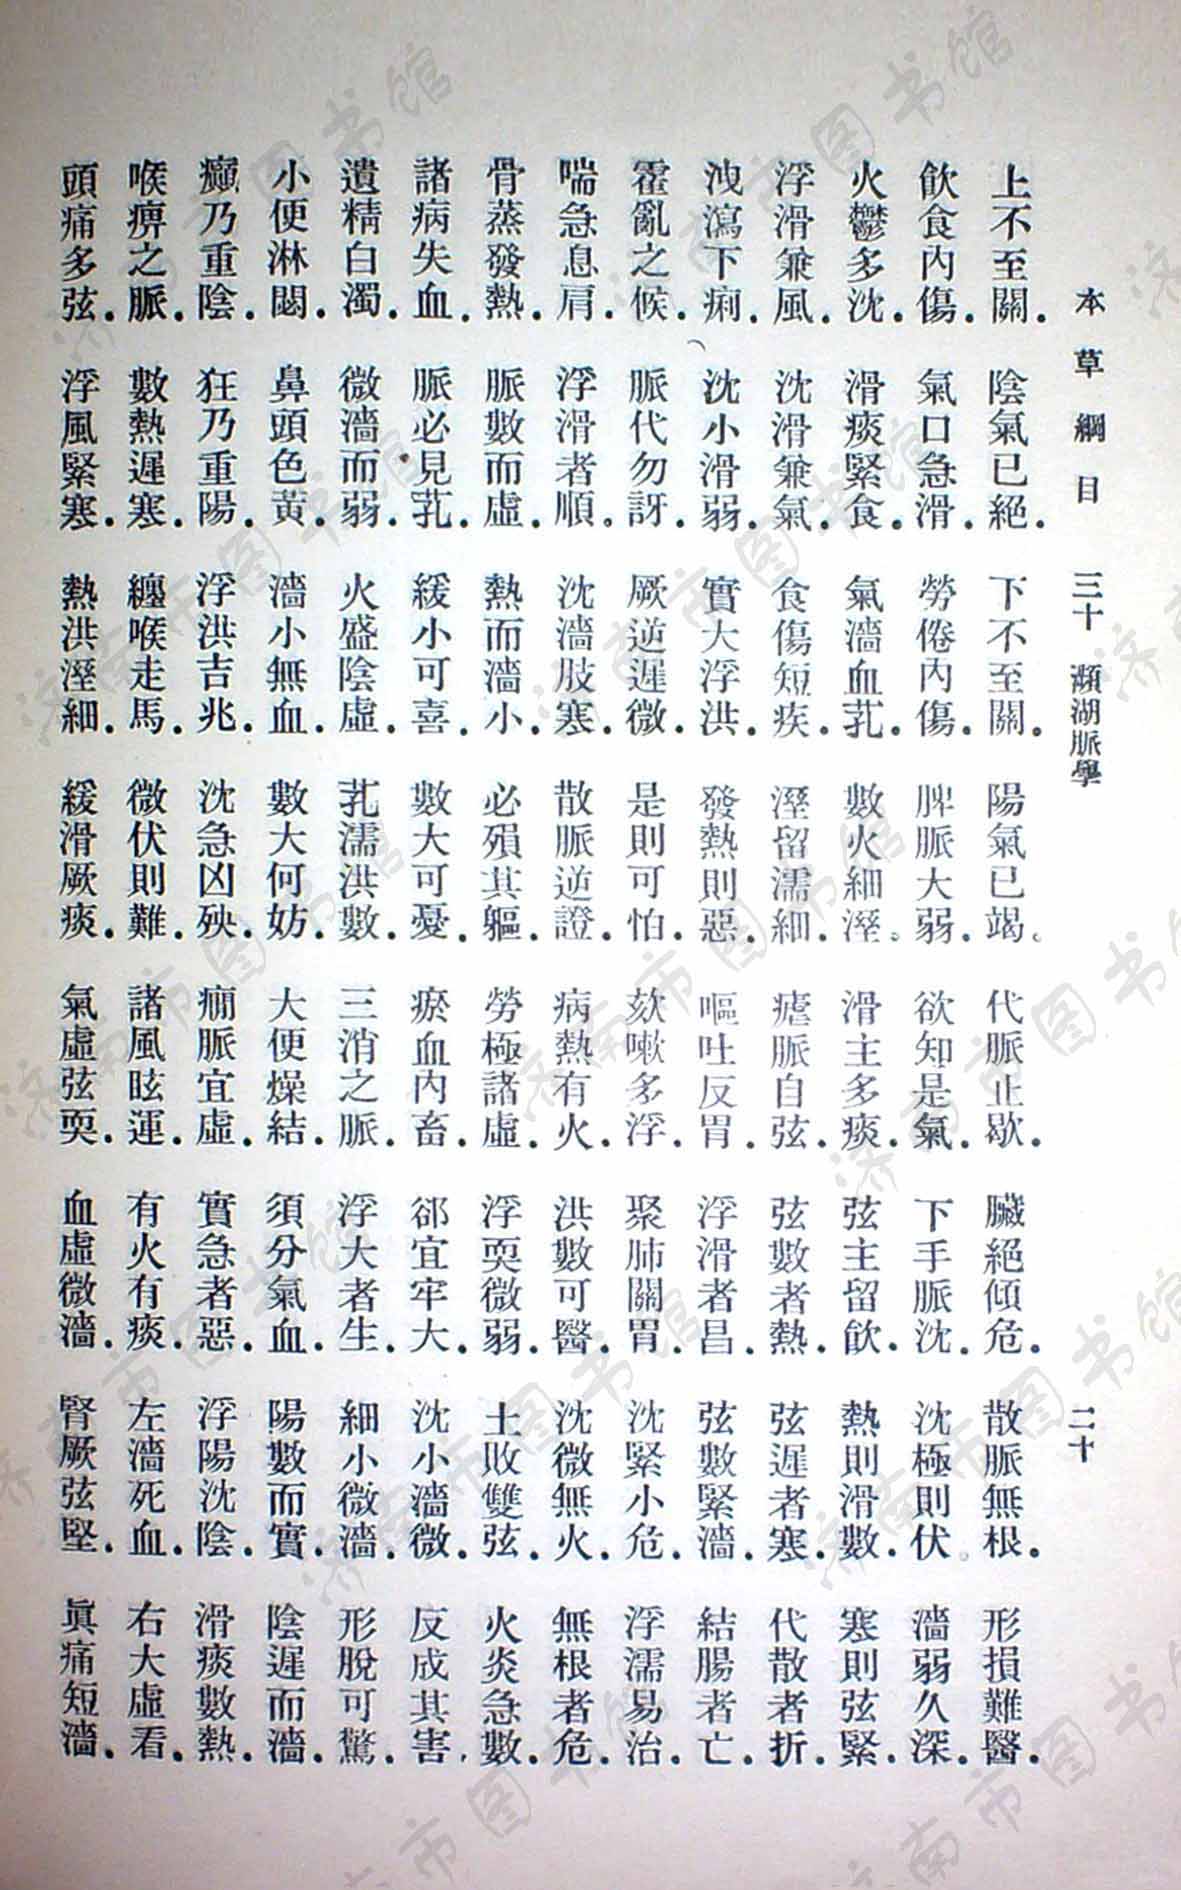 本草綱目 三十 瀕湖脈學 二十
上不至關．陰氣已絕．下不至關．陽氣已竭。代脈止歇．臟絕傾危．散脈無根．形損難醫．
飲食內傷．氣口急滑．勞倦內傷．脾脈大弱．欲知是氣．下手脈沈．沈極則伏。濇弱久深．
火鬱多沈．滑痰緊食．氣濇血芤．數火細溼。滑主多痰．弦主留飲．熱則滑數．寒則弦緊．
浮滑兼風．沈滑兼氣．食傷短疾．溼留濡細．瘧脈自弦．弦數者熱．弦遲者寒．代散者折．
洩瀉下痢．沈小滑弱．實大浮洪．發熱則惡．嘔吐反胃．浮滑者昌．弦數緊濇．結腸者亡．
霍亂之候．脈代勿訝．厥逆遲微．是則可怕．欬嗽多浮．聚肺關胃．沈緊小危．浮濡易治．
喘急息肩．浮滑者順。沈濇肢寒．散脈逆證．病熱有火．洪數可醫．沈微無火．無根者危．
骨蒸發熱．脈數而虛．熱而濇小．必殞其軀．勞極諸虛．浮耎微弱．土敗雙弦．火炎急數．
諸病失血．脈必見芤．緩小可喜．數大可憂．瘀血內畜．郤宜牢大．沈小濇微．反成其害．
遺精白濁．微濇而弱．火盛陰虛．芤濡洪數．三消之脈．浮大者生．細小微濇．形脫可驚．
小便淋閟．鼻頭色黃．濇小無血．數大何妨．大便燥結．須分氣血．陽數而實．陰遲而濇．
癲乃重陰．狂乃重陽．浮洪吉兆．沈急凶殃．癇脈宜虛．實急者惡．浮陽沈陰．滑痰數熱．
喉痹之脈．數熱遲寒．纏喉走馬．微伏則難．諸風眩運．有火有痰．左濇死血．右大虛看．
頭痛多弦．浮風緊寒．熱洪溼細．緩滑厥痰．氣虛弦耎．血虛微濇．腎厥弦堅．眞痛短濇．